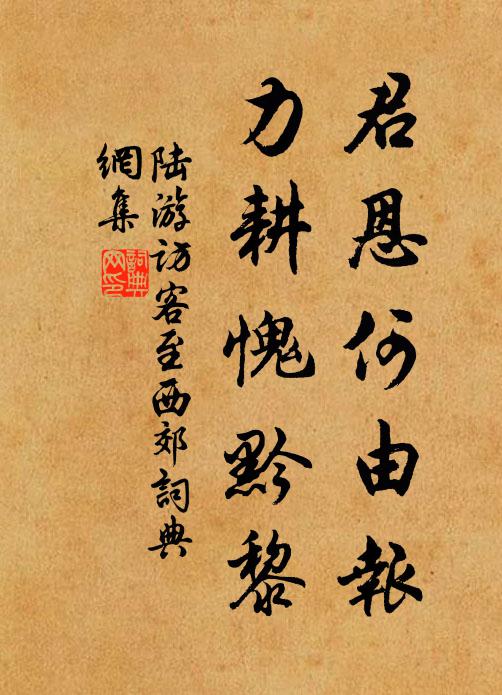 君恩何由報
力耕愧黔黎
陆游访客至西郊詞典
網集
詞典
网印